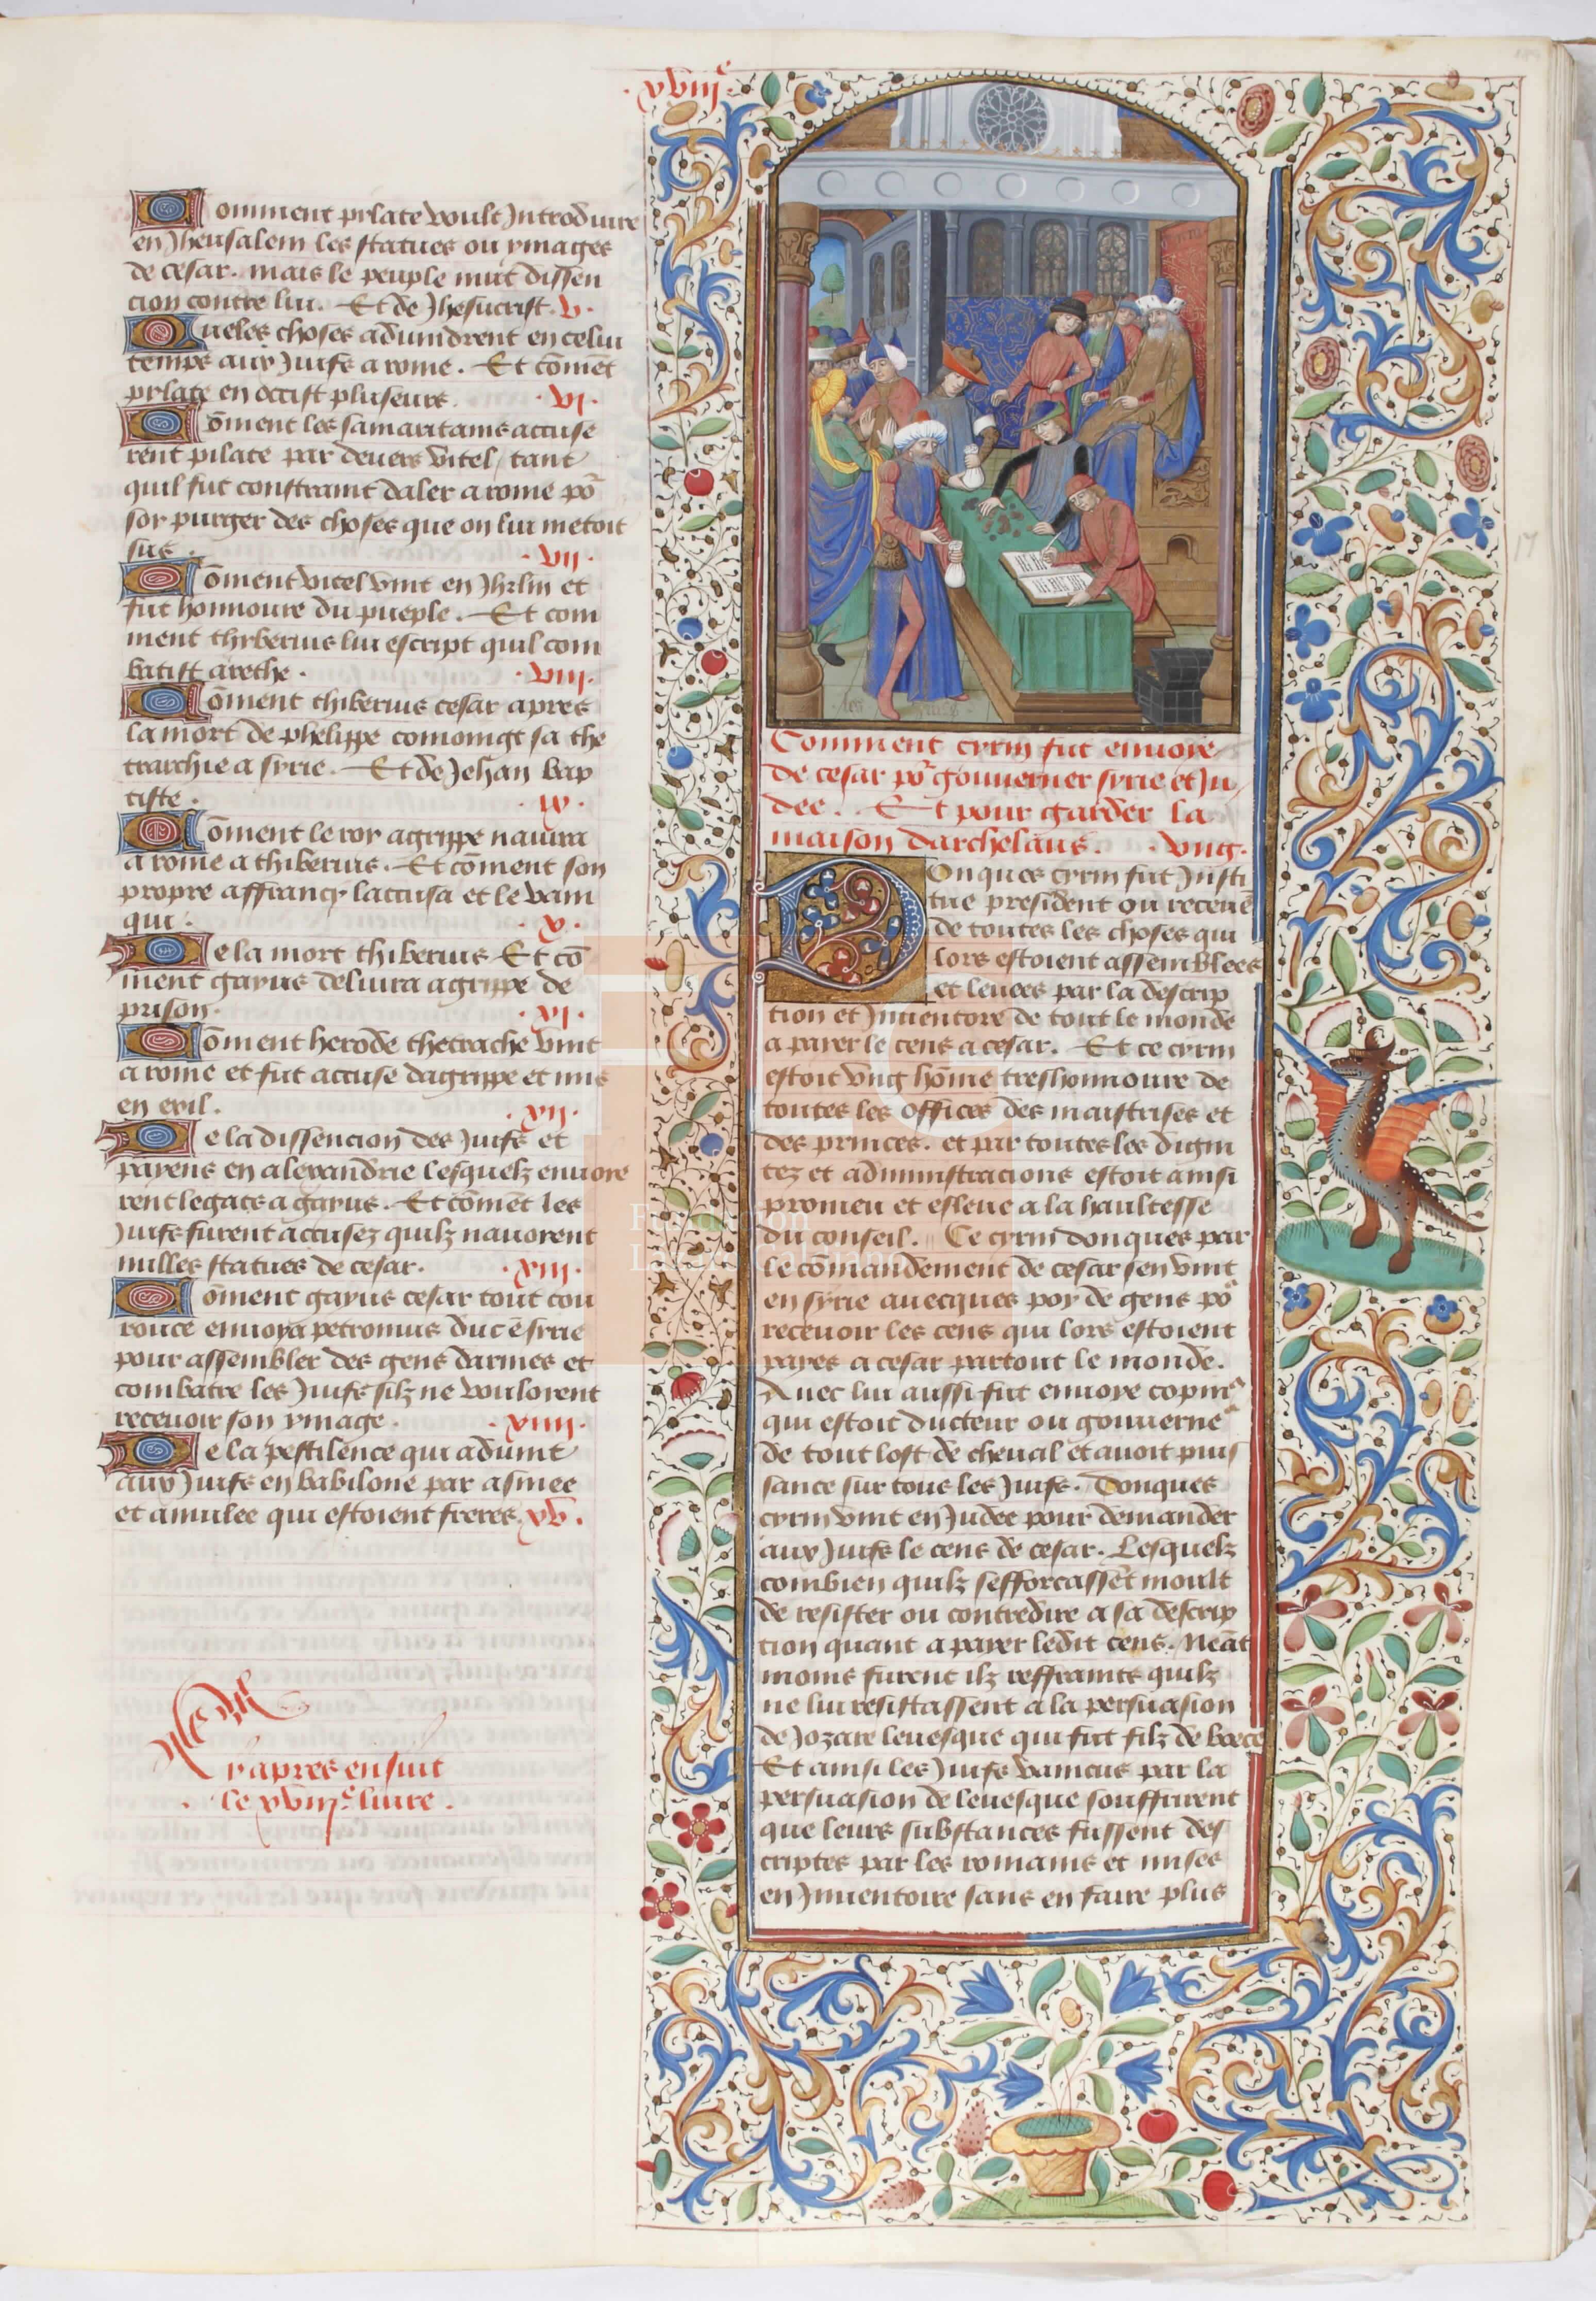 Comment pylate voult introduire
en Jherusalem les statues ou ymages
de cesar. mais le peuple mut dissen
cion contre lui. Et de Jhesucrist. v.
Queles choses advindrent en celui
temps aux Juifs a rome. Et cōmēt
pylate en occist pluseurs. vi.
Cōment les samaritains accuse
rent pilate par devers vitel, tant
quil fut constraint daler a rome po2
soy purger des choses que on lui metoit
sus. vii.
Cōment vitel vint en Jhrlm et
fut honnoure du pueple. Et com
ment thyberius lui escript quil com
batist arethe. viii.
Cōment thiberius cesar apres
la mort de phelippe comoingt sa the
trarchie a syrie. Et de Jehan bap
tiste. ix.
Cōment le roy agrippe naviga
a rome a thiberius. Et cōment son
propre affrancy laccusa et le vain
qui. x.
De la mort thiberius Et cō
ment gayus delivra agrippe de
prison. xi.
Cōment herode thetrache vint
a rome et fut accuse dagrippe et mis
en exil. xii.
De la dissencion des Juifs et
payens en alexandrie lesquelz envoye
rent legats a gayus. Et cōmēt les
Juifs furent accusez quilz navoient
nulles statues de cesar. xiii.
Cōment gayus cesar tout cou
rouce envoya petronius duc ē syrie
pour assembler des gens darmes et
combatre les Juifs silz ne vouloient
recevoir son ymage. xiiii.
De la pestilence qui advint
aux Juifs en babilone par asinee
et anulee qui estoient freres. xv.
Cy apres ensuit
le xviiie livre.
xviiie
Comment cyrin fut envoye
de cesar po2 gouverner syrie et Ju
dee. Et pour garder la
maison darchelaus. ung.
Donques cyrin fut Insti
tue president ou receue
de toutes les choses qui
lors estoient assemblees
et levees par la descrip
tion et Inventore de tout le monde
a payer le cens a cesar. Et ce cyrin
estoit ung hōme treshonnoure de
toutes les offices des maistrises et
des princes. et par toutes les digni
tez et administracions estoit ainsi
promeu et esleve a la haultesse
du conseil. Ce cyrin donques par
le cōmandement de cesar sen vint
en syrie avecques poy de gens po2
recevoir les cens qui lors estoient
payes a cesar partout le monde.
Avec lui aussi fut envoye
qui estoit ducteur ou gouverne
de tout lost de cheval et avoit puis
sance sur tous les Juifs. Donques
cyrin vint en Judee pour demander
aux Juifs le cens de cesar. Lesquelz
combien quilz sefforcassēt moult
de resister ou contredire a sa descrip
tion quant a payer ledit cens. Neāt
moins furent ilz reffrains quilz
ne lui resistassent a la persuasion
de Jozare levesque qui fut filz de
Et ainsi les Juifs vaincus par la
persuasion de levesque souffrirent
que leurs substances fussent des
criptes par les romains et mises
en Inventoire sans en faire plus
Fundación
Lázaro Galdiano